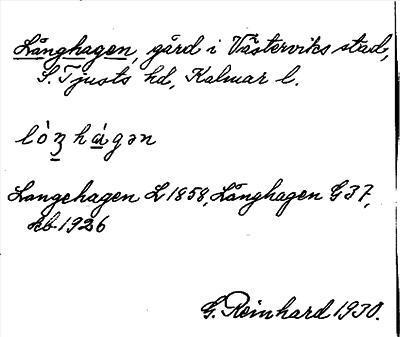 Långhagen, gård i Västerviks stad,
S. Tjusts hd, Kalmar l.
Langehagen L 1858, Långhagen G 37,
kb 1926
G. Reinhard 1930.